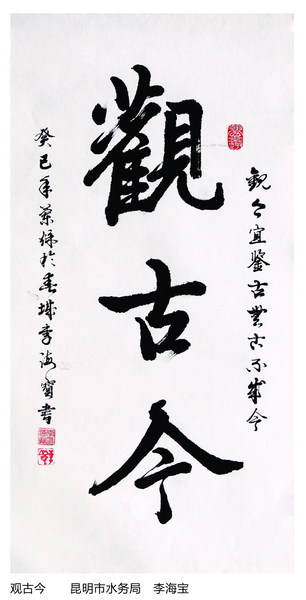 觀今宜鑒古無古不成今
觀古今
癸巳年於春城李海寶書
观古今 昆明市水务局 李海宝